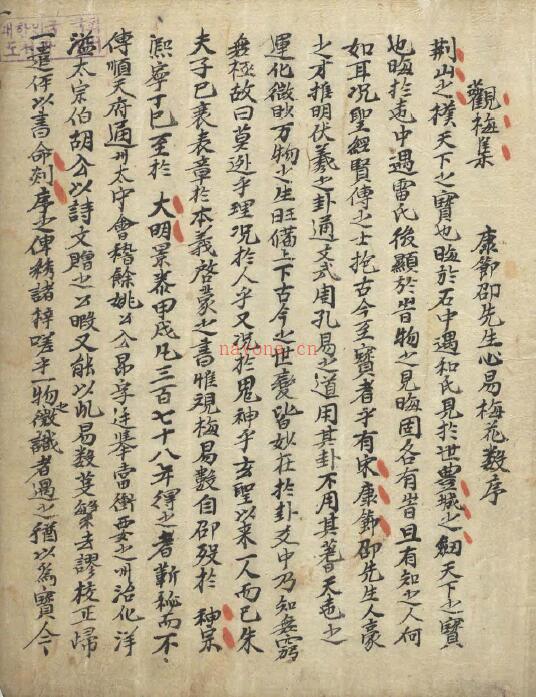 觀梅集　康節邵先生心易梅花数序
荆山之樸天下之寶也晦於石中遇和氏見於世豊城之劒天下之寶
也晦於之中遇雷氏後顕於旹物之見晦固各有旹且有知之人何
如耳况聖經賢傳之士抱古今至寶者乎有宋康節邵先生人豪
之才推明伏羲之卦通文武周孔易之道用其卦不用其蓍天地之
運化微妙万物之生旺備上下古今之世變皆妙在於卦爻中乃知無窮
無極故曰莫逃乎理况於人乎又况於鬼神乎去聖以来一人而已朱
夫子已褒表章於本義啓蒙之書惟観梅易数自邵歿於神杲
凞寧丁巳至於大明景泰甲戌凡三百七十八年得之者靳秘而不
傳順天府通州太守會稽餘姚公昂字廷舉當衝要之州治化洋
溢太宗伯胡公以詩文贈之公暇又能以此易数芟繁去謬校正歸
一遣伻以書命刻序之俾精諸梓嗟乎一物之微識者遇之猶以為寶今
nayona.cn